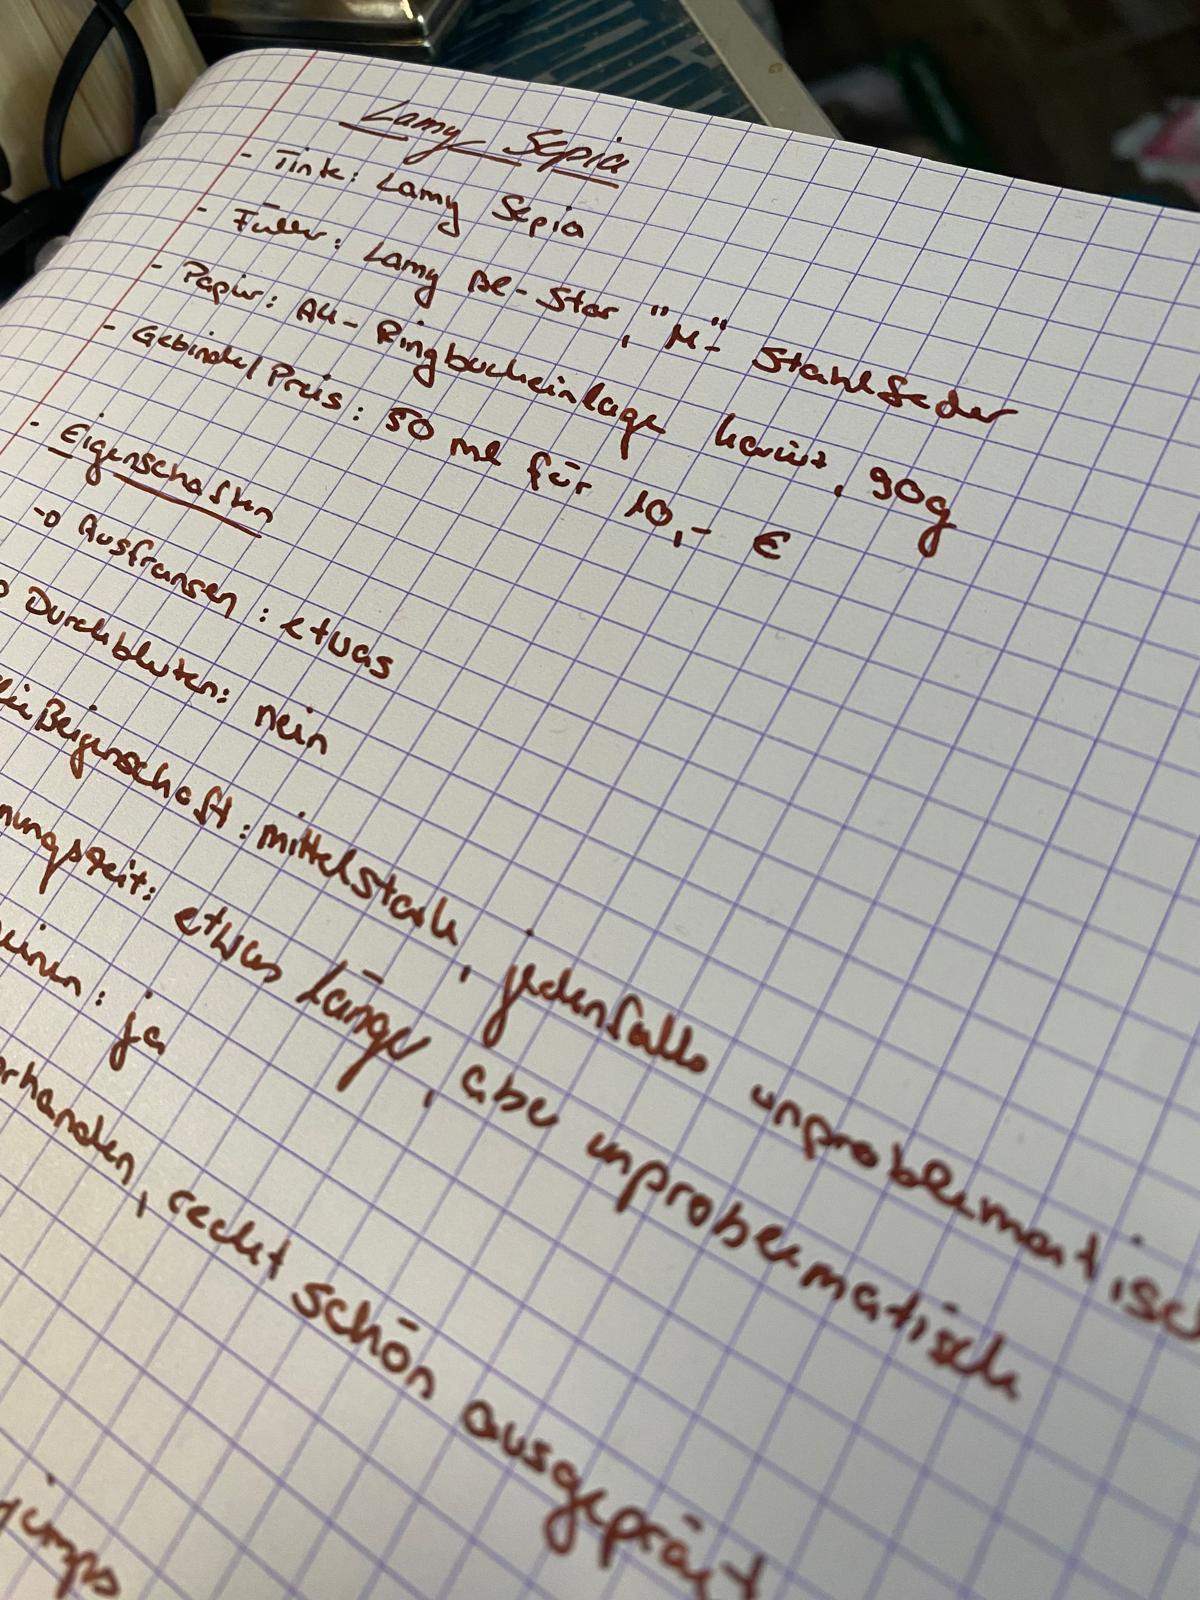 Lamy Sepia
- Tinte: Lamy Sepia
- Füller: Lamy AL-Star, "M"- Stahlfeder
- Papier: A4- Ringbucheinlage kariert, 90g
- Gebinde/Preis: 50 ml für 10,- €
- Eigenschaften
-o Ausfransen: etwas
o Durchbluten: nein
ließeigenschaft: mittelstark, jedenfalls unproblematisc
nungszeit: etwas länger, aber unprobematisch
einen: ja
rhanden, recht schön ausgeprägt